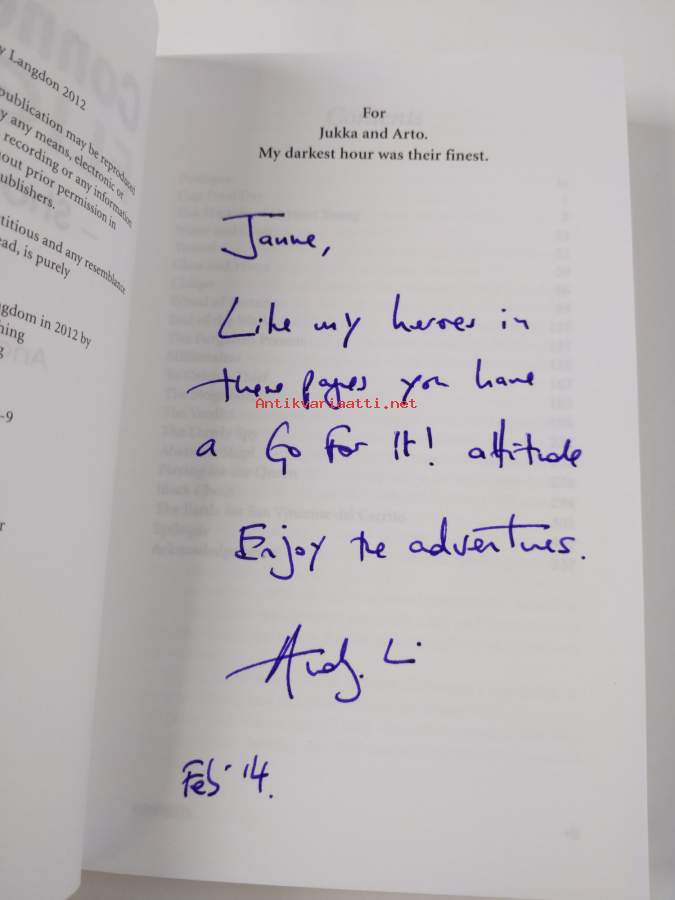 y Langdon 2012
publication may be reproduced
y any means, electronic or
recording or any information
out prior permission in
publishers.
titious and any resemblance
ead, is purely
gdom in 2012 by
hing
g
-9
r
For
Jukka and Arto.
My darkest hour was their finest.
Janne,
Like my heroes in
these pages you have
Antikvariaatti.net
a Go For It! attitude
Enjoy the adventures.
Andy. L
Feb '14.